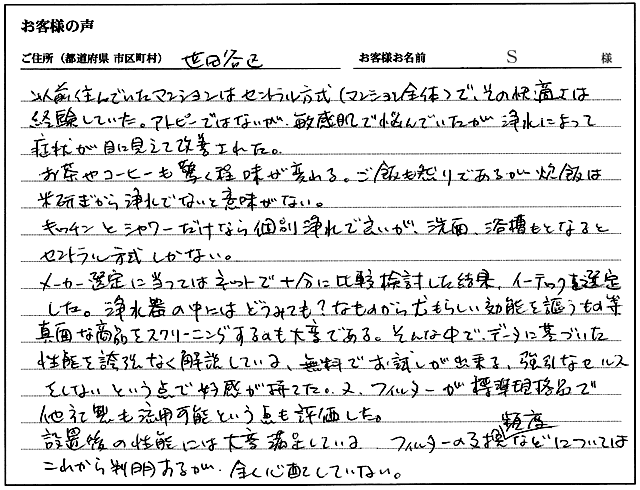 お客様の声
ご住所（都道府県 市区町村） 世田谷区 お客様お名前 S 様
以前住んでいたマンションはセントラル方式（マンション全体）で、その快適さは
経験していた。アトピーではないが、敏感肌で悩んでいたが浄水によって
症状が目に見えて改善された。
お茶やコーヒーも驚く程味が変わる。ご飯も然りであるが炊飯は
米研ぎから浄水でないと意味がない。
キッチンとシャワーだけなら個別浄水で良いが、洗面、浴槽もとなると
セントラル方式しかない。
メーカー選定に当ってはネットで十分に比較検討した結果、イーテックを選定
した。浄水器の中にはどうみても？なものから尤もらしい効能を謳うもの等
真面な商品をスクリーニングするのも大変である。そんな中で、データに基づいた
性能を誇張なく解説している、無料でお試しが出来る、強引なセールス
をしないという点で好感が持てた。又、フィルターが標準規格品で
他社製も活用可能という点も評価した。
設置後の性能には大変満足している フィルターの交換頻度などについては
これから判明するが、全く心配していない。